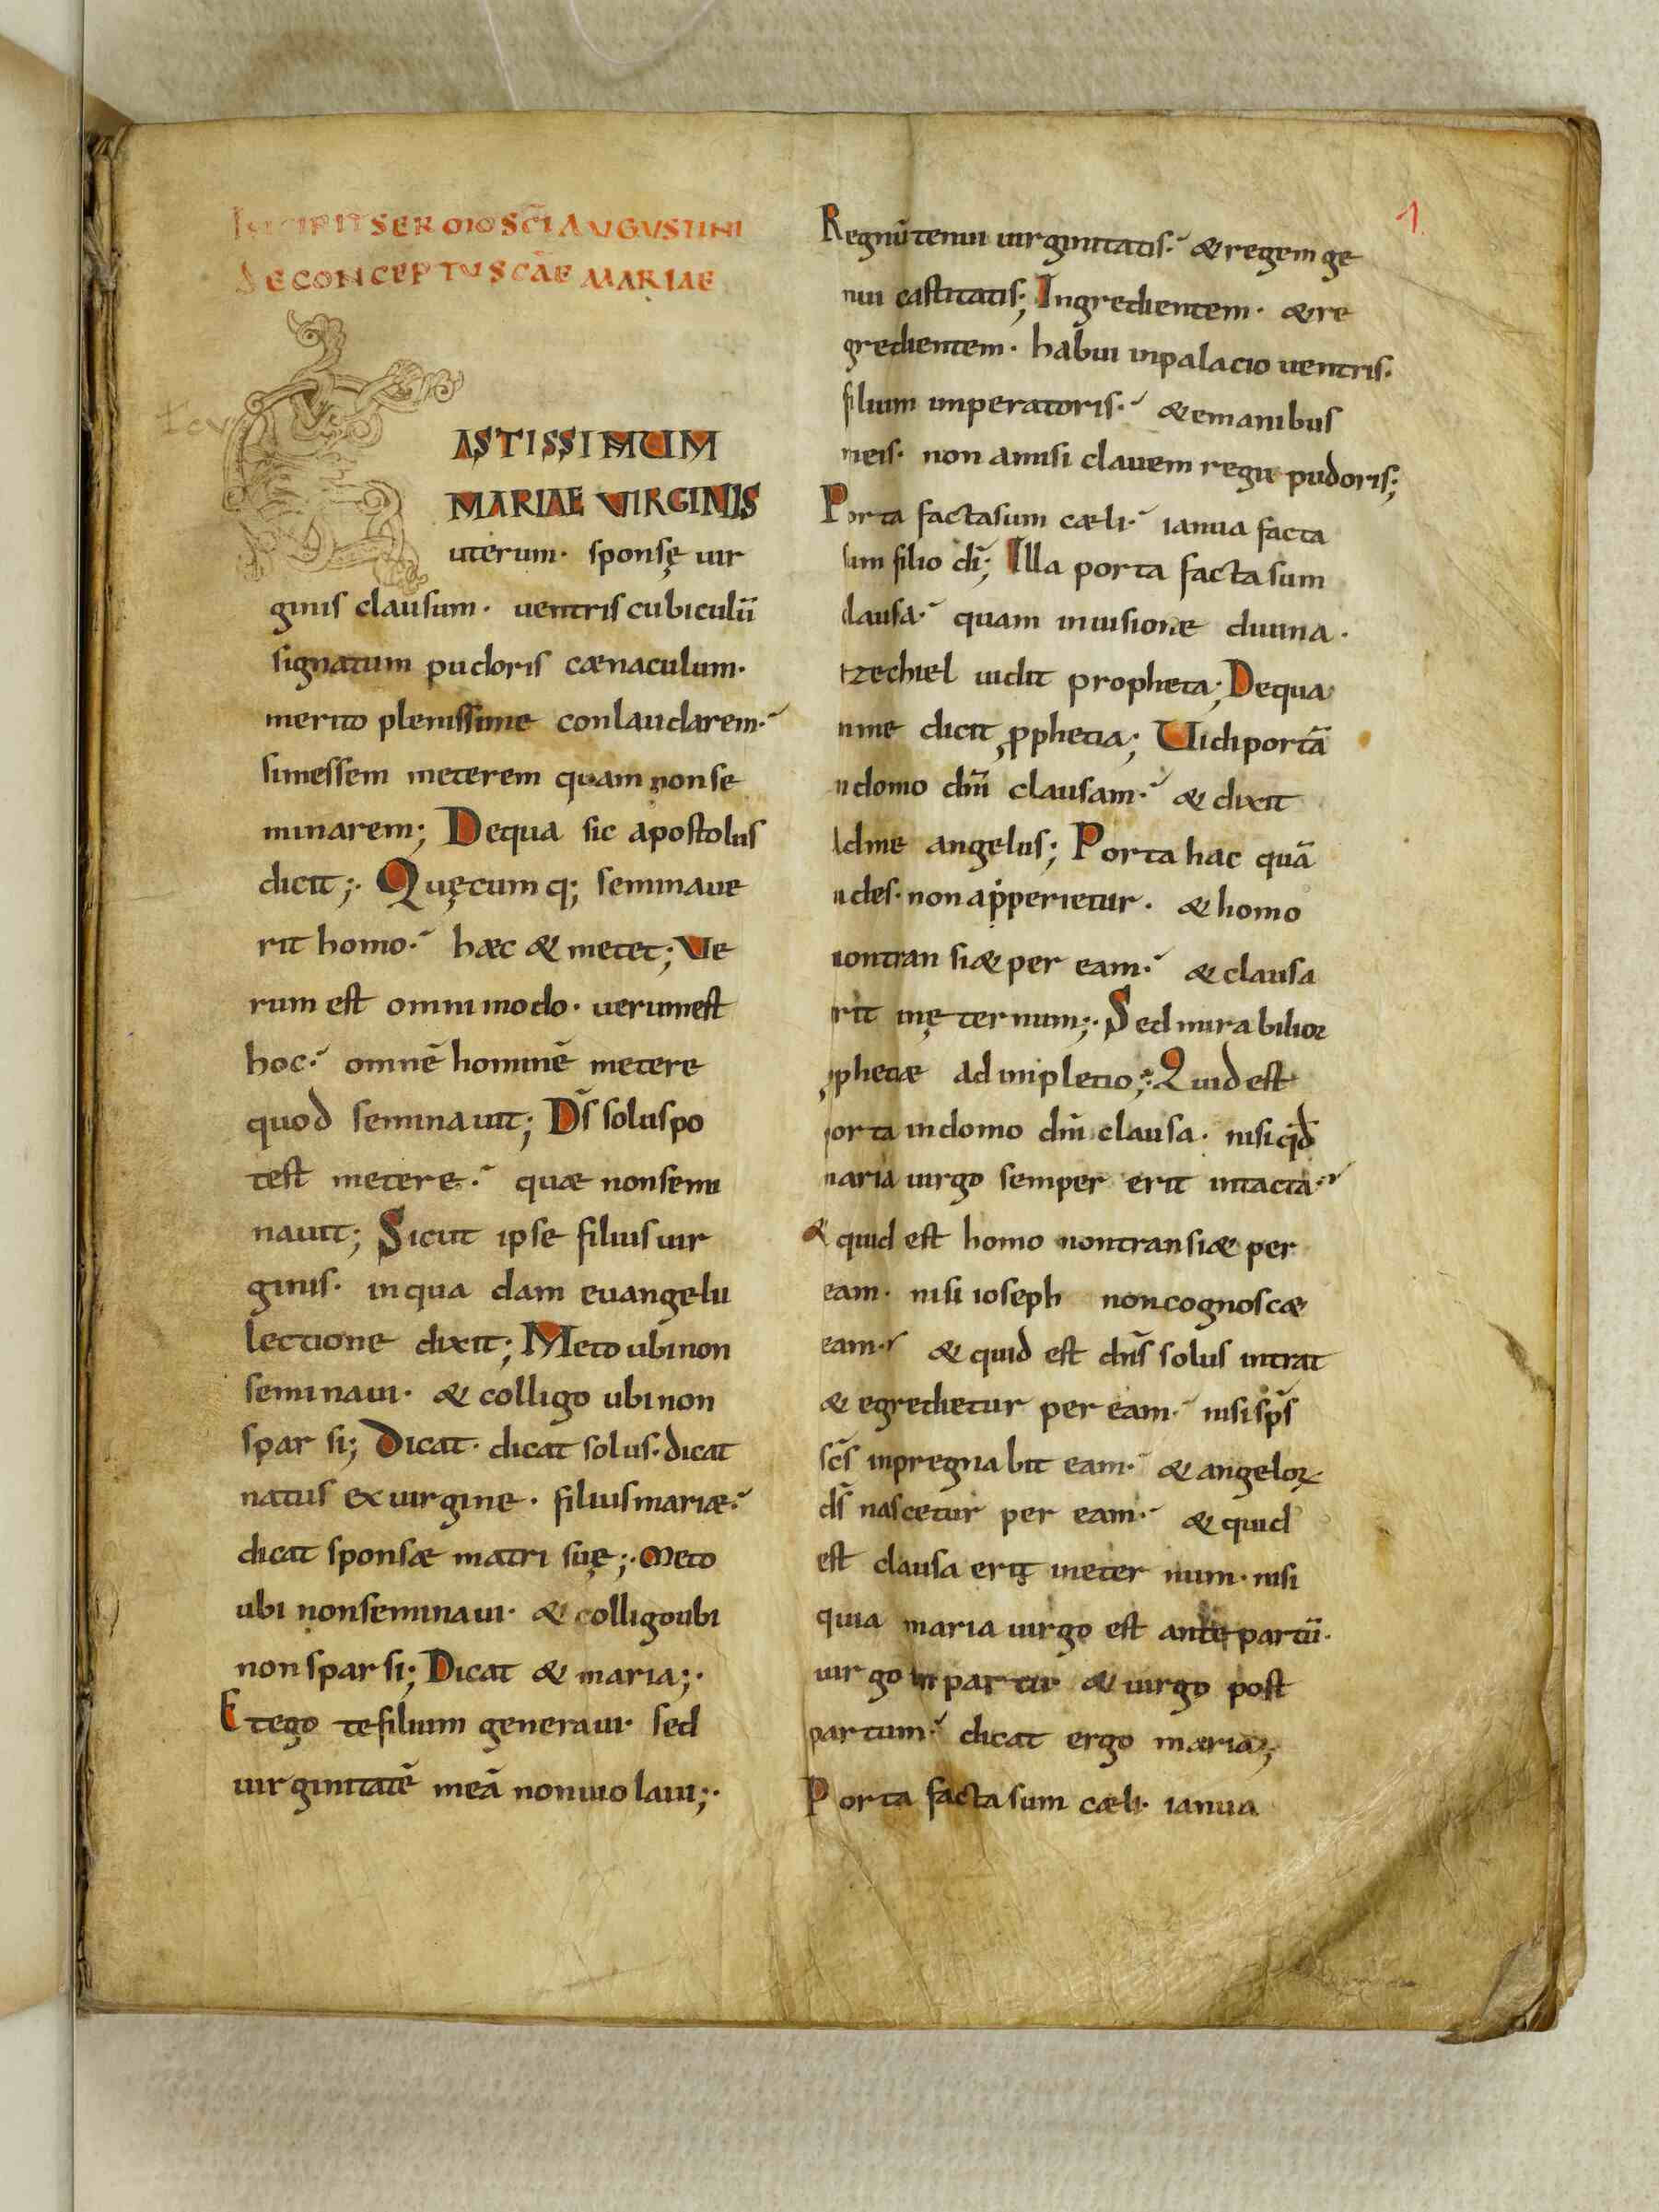 INCIPIT SERMO SCĪ AUGUSTINI
DE CONCEPTU SCĀE MARIAE
CASTISSIMUM
MARIAE VIRGINIS
uterum· sponsę uir
ginis clausum· uentris cubiculū
signatum pudoris cænaculum·
merito plenissime conlaudarem·
simessem meterem quam nonse
minarem; Dequa sic apostolus
dicit;· Quęcumq; seminaue
rit homo· hæc & metet; Ve
rum est omnimodo· uerumest
hoc· omnē hominē metere
quod seminauit; Dś soluspo
test metere· quæ nonsemi
nauit; Sicut ipse filius uir
ginis· inqua dam euangelii
lectione dixit; Meto ubinon
seminaui· & colligo ubinon
spar si; Dicat· dicat solus· dicat
natus ex uirgine· filiusmariæ·
dicat sponsæ matri suę;· Meto
ubi nonseminaui· & colligoubi
nonspar si; Dicat & maria;·
Etego tefilium generaui· sed
uirginitatē meā nonuiolaui;·
1
Regnū tenui uirginitatis· & regem ge
nui castitatis; Ingredientem· & re
gredientem· habui inpalacio uentris·
filium imperatoris· & emanibus
meis· non amisi clauem regii pudoris;
Porta factasum cæli· ianua facta
sum filio dī; Illa porta facta sum
clausa· quam inuisione diuina·
Ezechiel uidit propheta; Dequa
inme dicit ꝓphetia; Uidi portā
indomo dn̄i clausam· & dixit
Adme angelus; Porta hac quā
uides· non apperietur· & homo
nontran si& per eam· & clausa
erit inę ternum;· Sed mirabilior
ꝓphetiæ adinpletio;· Quid est
porta indomo dn̄i clausa· nisi qd̄
maria uirgo semper erit intacta·
& quid est homo nontransi& per
eam· nisi ioseph noncognosc&
eam· & quid est dn̄s solus intrat
& egredietur per eam· nisi sp̄s
sc̄s inpregnabit eam· & angeloꝝ
dś nascetur per eam· & quid
est clausa erit ineter num· nisi
quia maria uirgo est ante partū·
uir go in partu & uirgo post
partum· dicat ergo maria;
Porta facta sum cæli· ianua